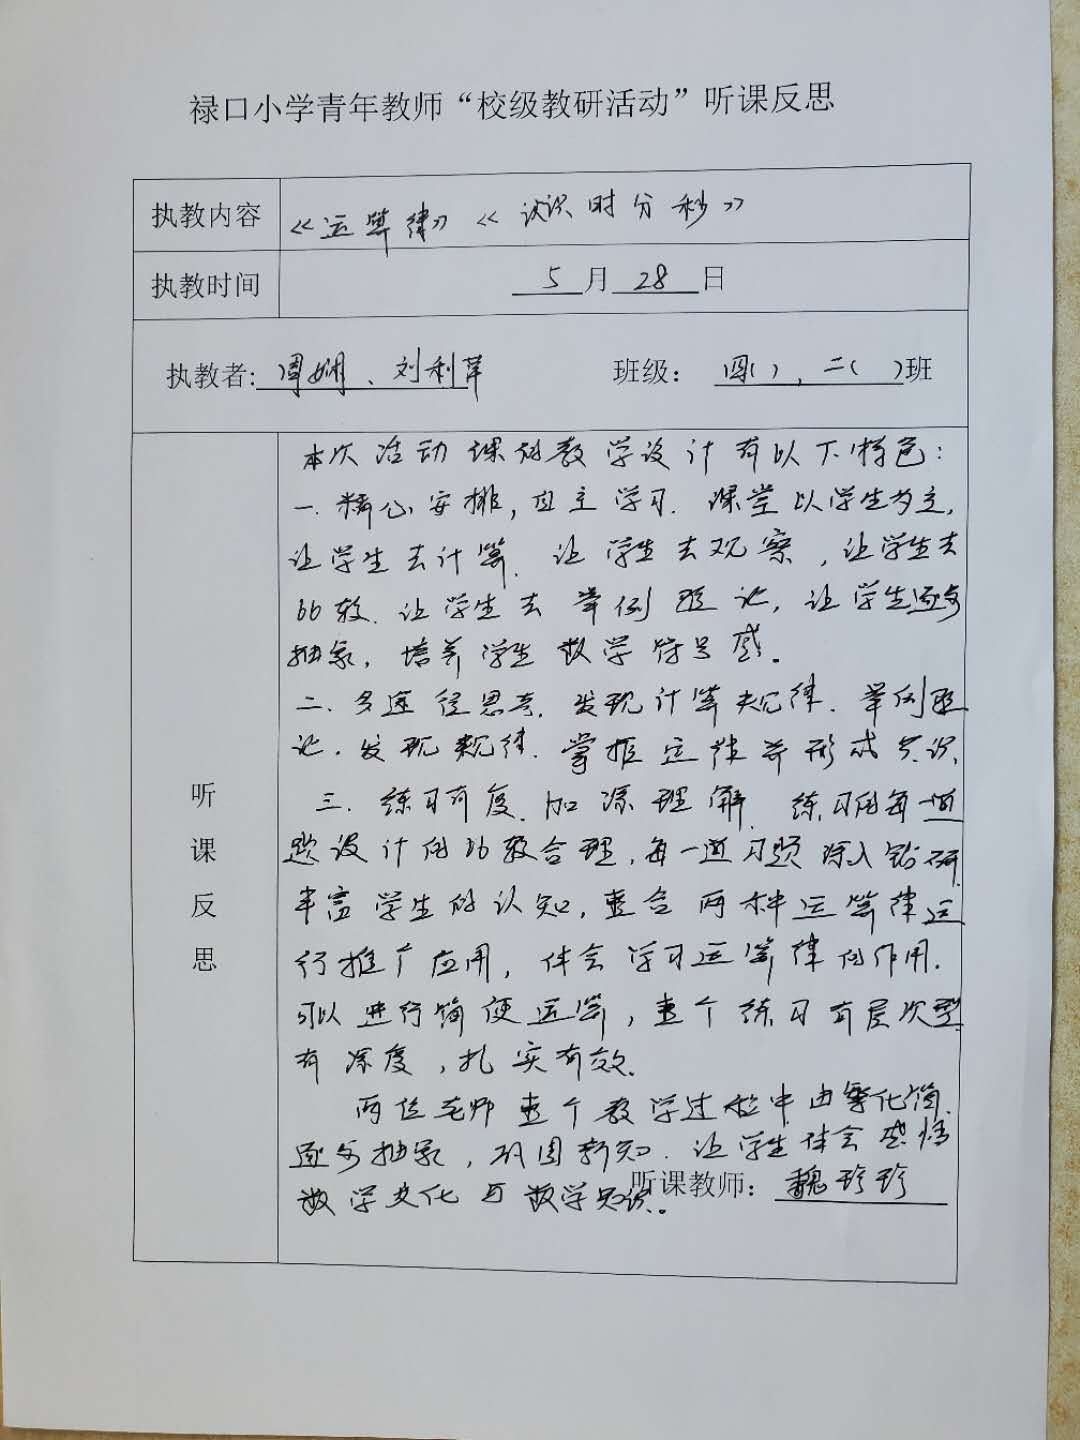 禄口小学青年教师“校级教研活动”听课反思
执教内容 《运算律》《认识时分秒》
执教时间 5月28日
执教者:周娴、刘利萍 班级: 四( ),二( )班
听课反思
本次活动课的教学设计有以下特色:
一.精心安排,自主学习.课堂以学生为主,
让学生去计算.让学生去观察,让学生去
比较.让学生去举例验证,让学生逐步
抽象,培养学生数学符号感。
二.多途径思考.发现计算规律.举例验
证.发现规律.掌握定律并形成共识.
三.练习有度.加深理解.练习的每一道
题设计的比较合理,每一道习题深入钻研
丰富学生的认知,整合两种运算律运
行推广应用,体会学习运算律的作用.
可以进行简便运算,整个练习有层次型
有深度,扎实有效.
两位老师整个教学过程中由繁化简.
逐步抽象,巩固新知.让学生体会感悟
数学文化与数学知识。
听课教师: 魏珍珍